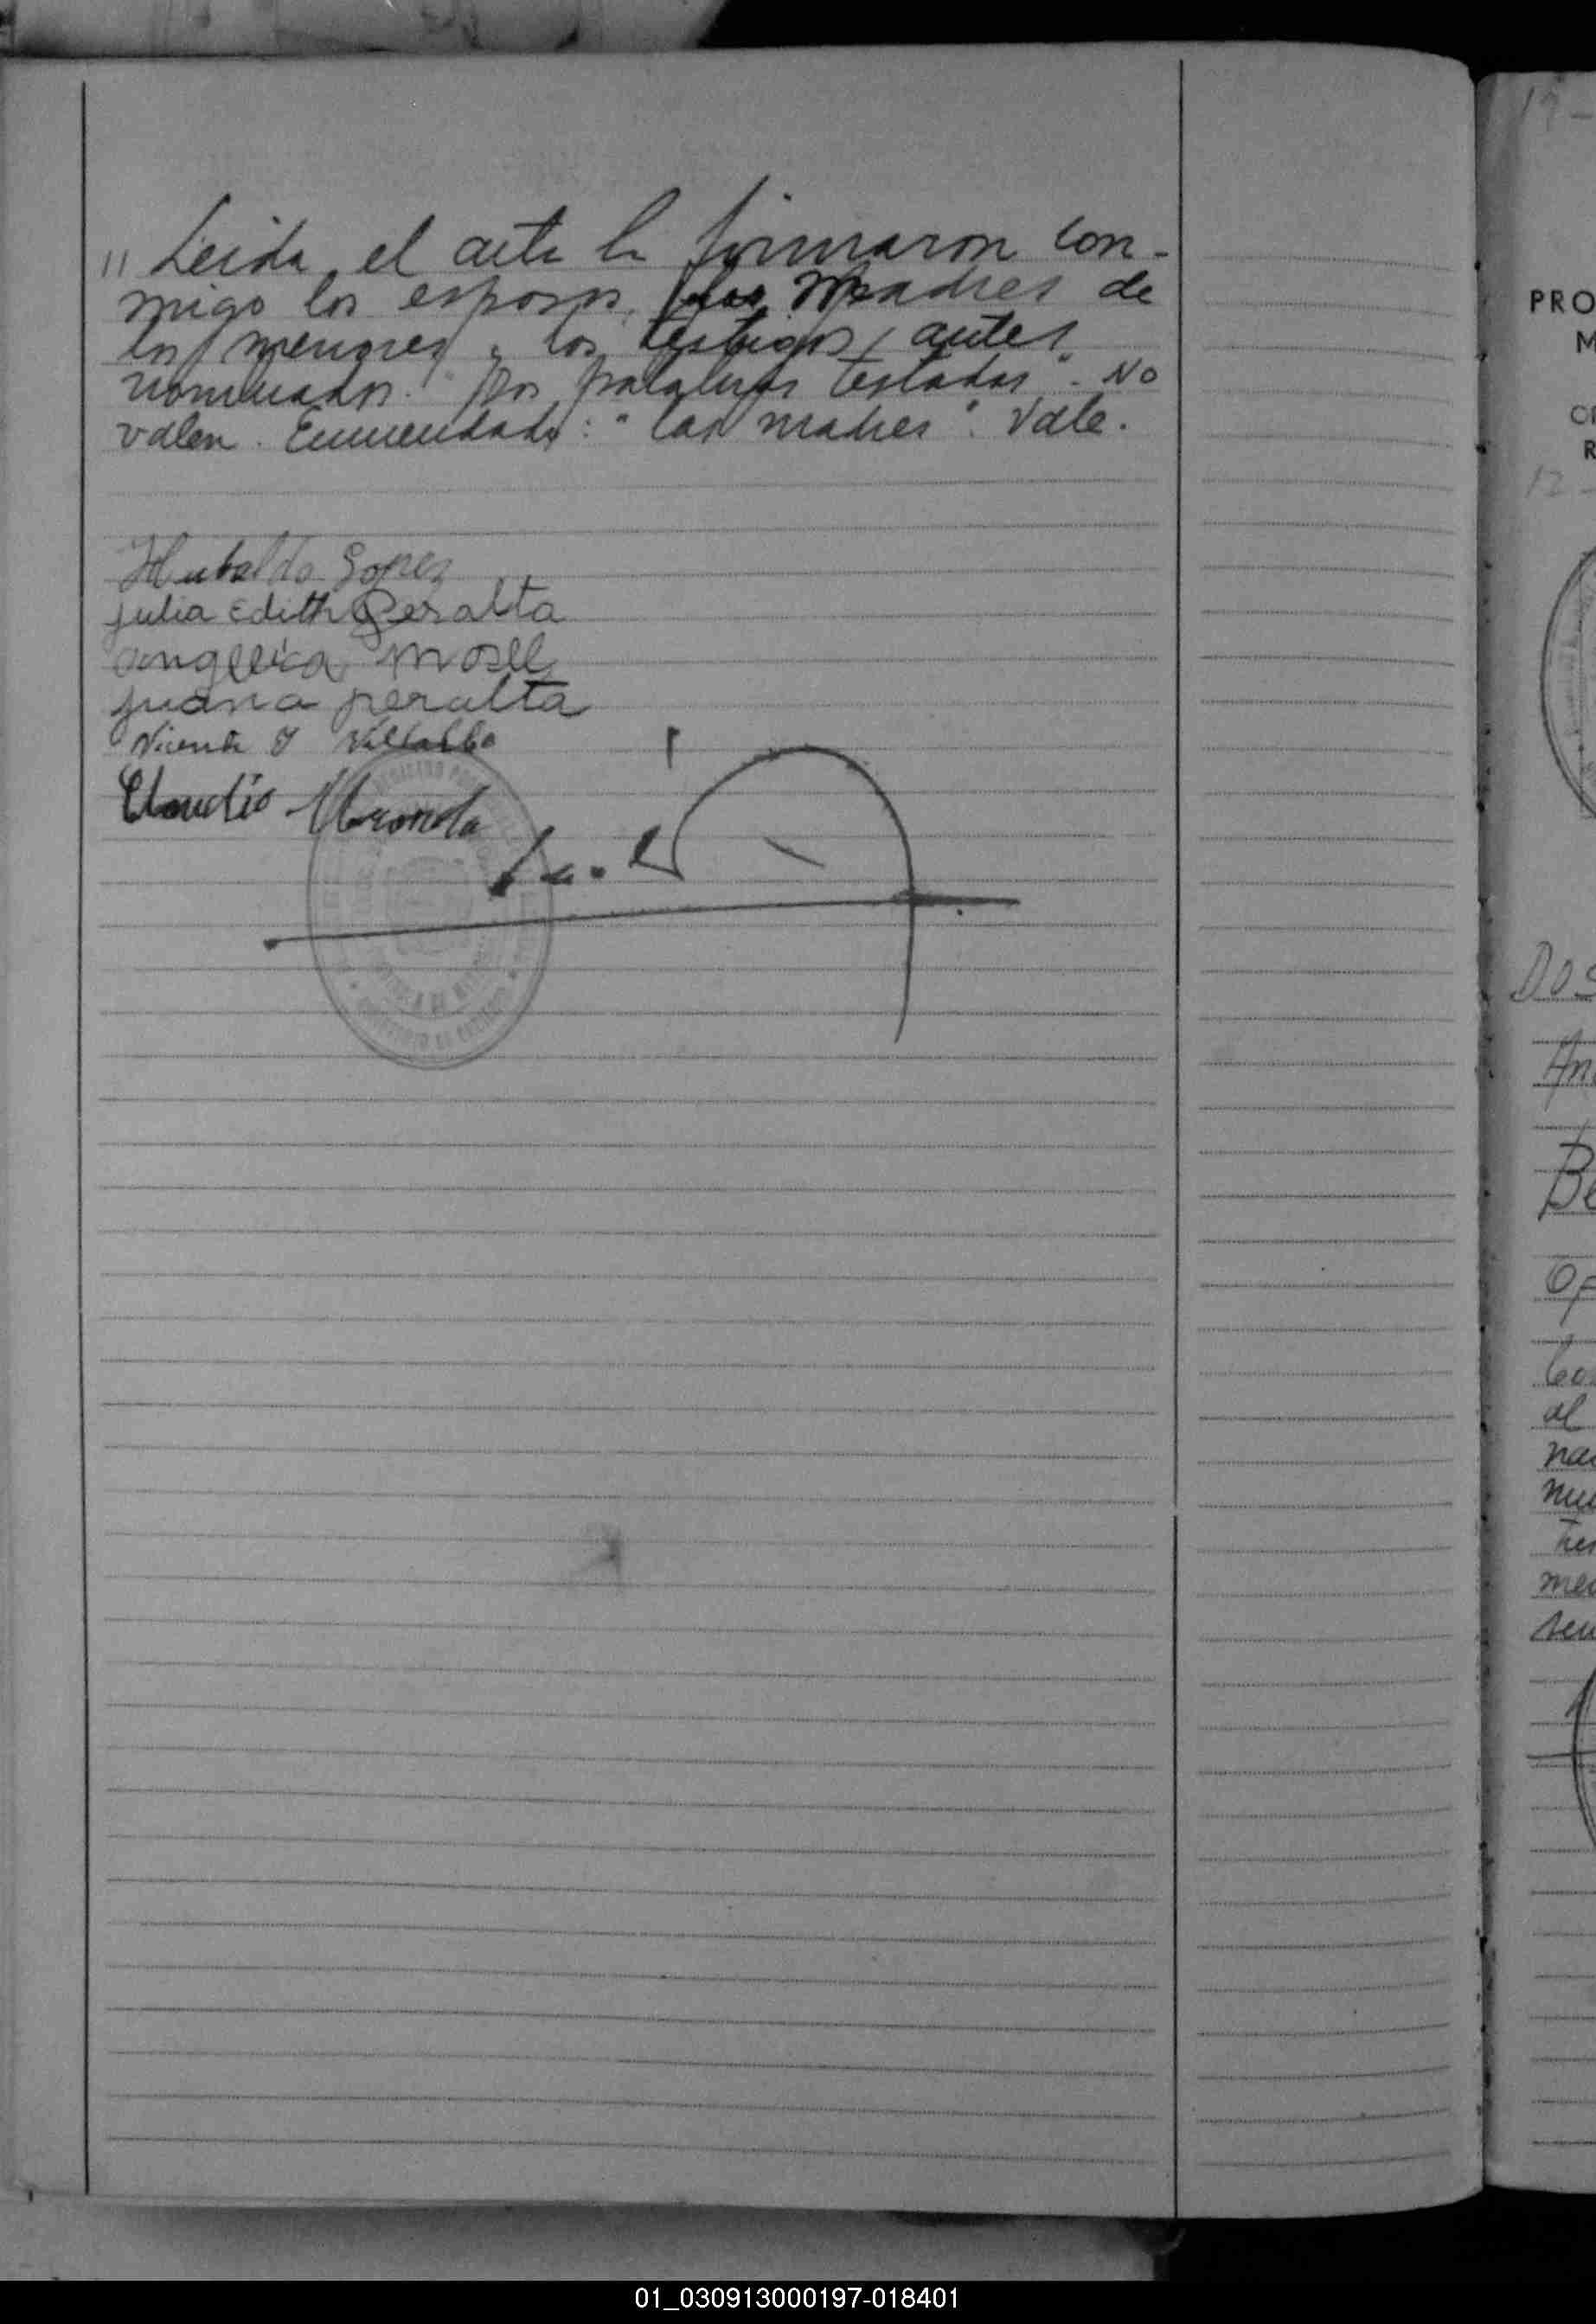 " Leida el acta la firmaron con-
migo los esposos, las Madres de
los menores y los testigos antes
nombrados. "Dos palabras testadas". No
valen. Enmendado: "las madres". Vale.
Hubaldo Lopez
Julia Edith Peralta
angelica moll
juana peralta
Vicente Villalba
Claudio
PRO
M
R
DOS
Be
al
01_030913000197-018401